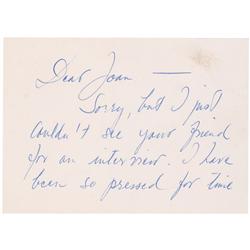 Dear Joan —
Sorry, but I just
couldn't see your friend
for an interview. I have
been so pressed for time